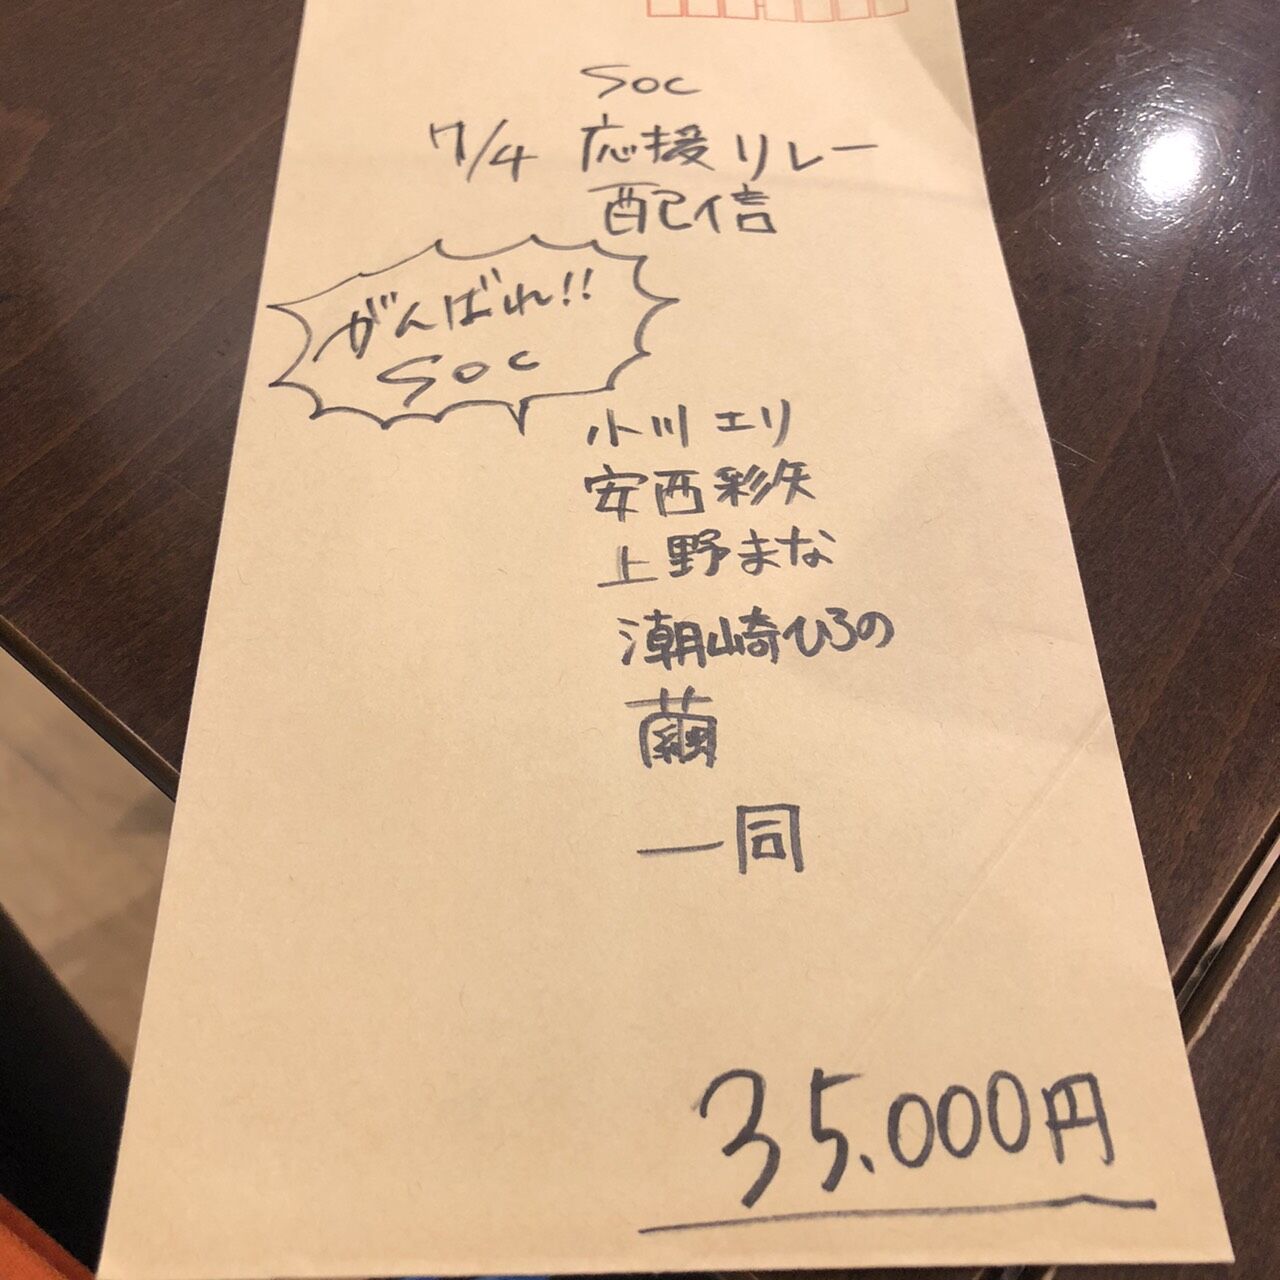 Soc
7/4 応援リレー
配信
がんばれ!!
Soc
小川エリ
安西彩矢
上野まな
潮崎ひろの
繭
一同
35.000円